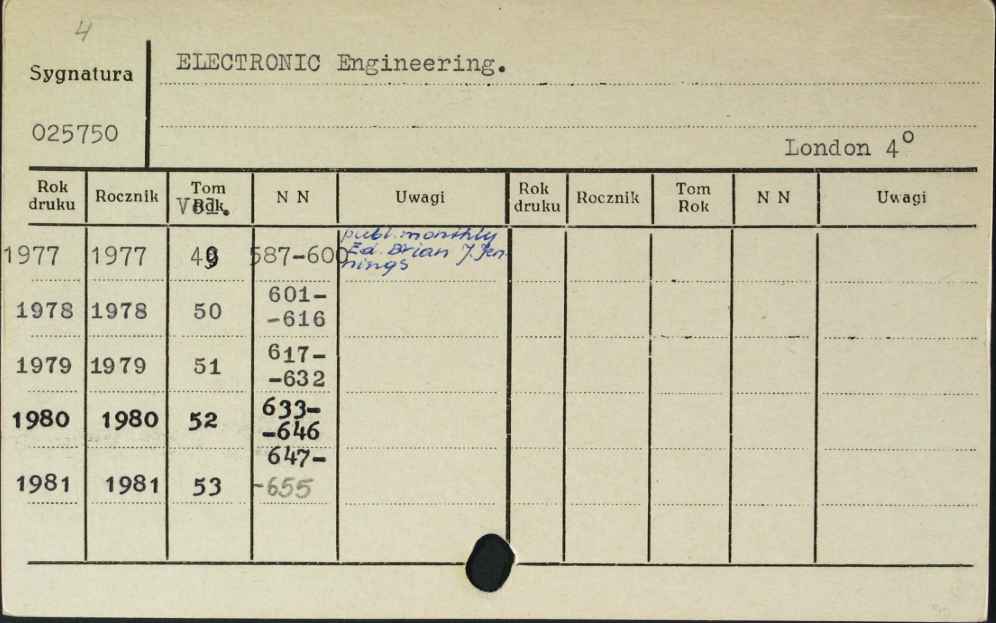 4
Sygnatura
ELECTRONIC Engineering.
025750
London 4°
Rok druku Rocznik Tom Vol. N N Uwagi Rok druku Rocznik Tom Rok N N Uwagi
1977 1977 49 587-600 publ. monthly
Ed. Brian J. Jen-
nings
1978 1978 50 601-
-616
1979 1979 51 617-
-632
1980 1980 52 633-
-646
647-
1981 1981 53 -655